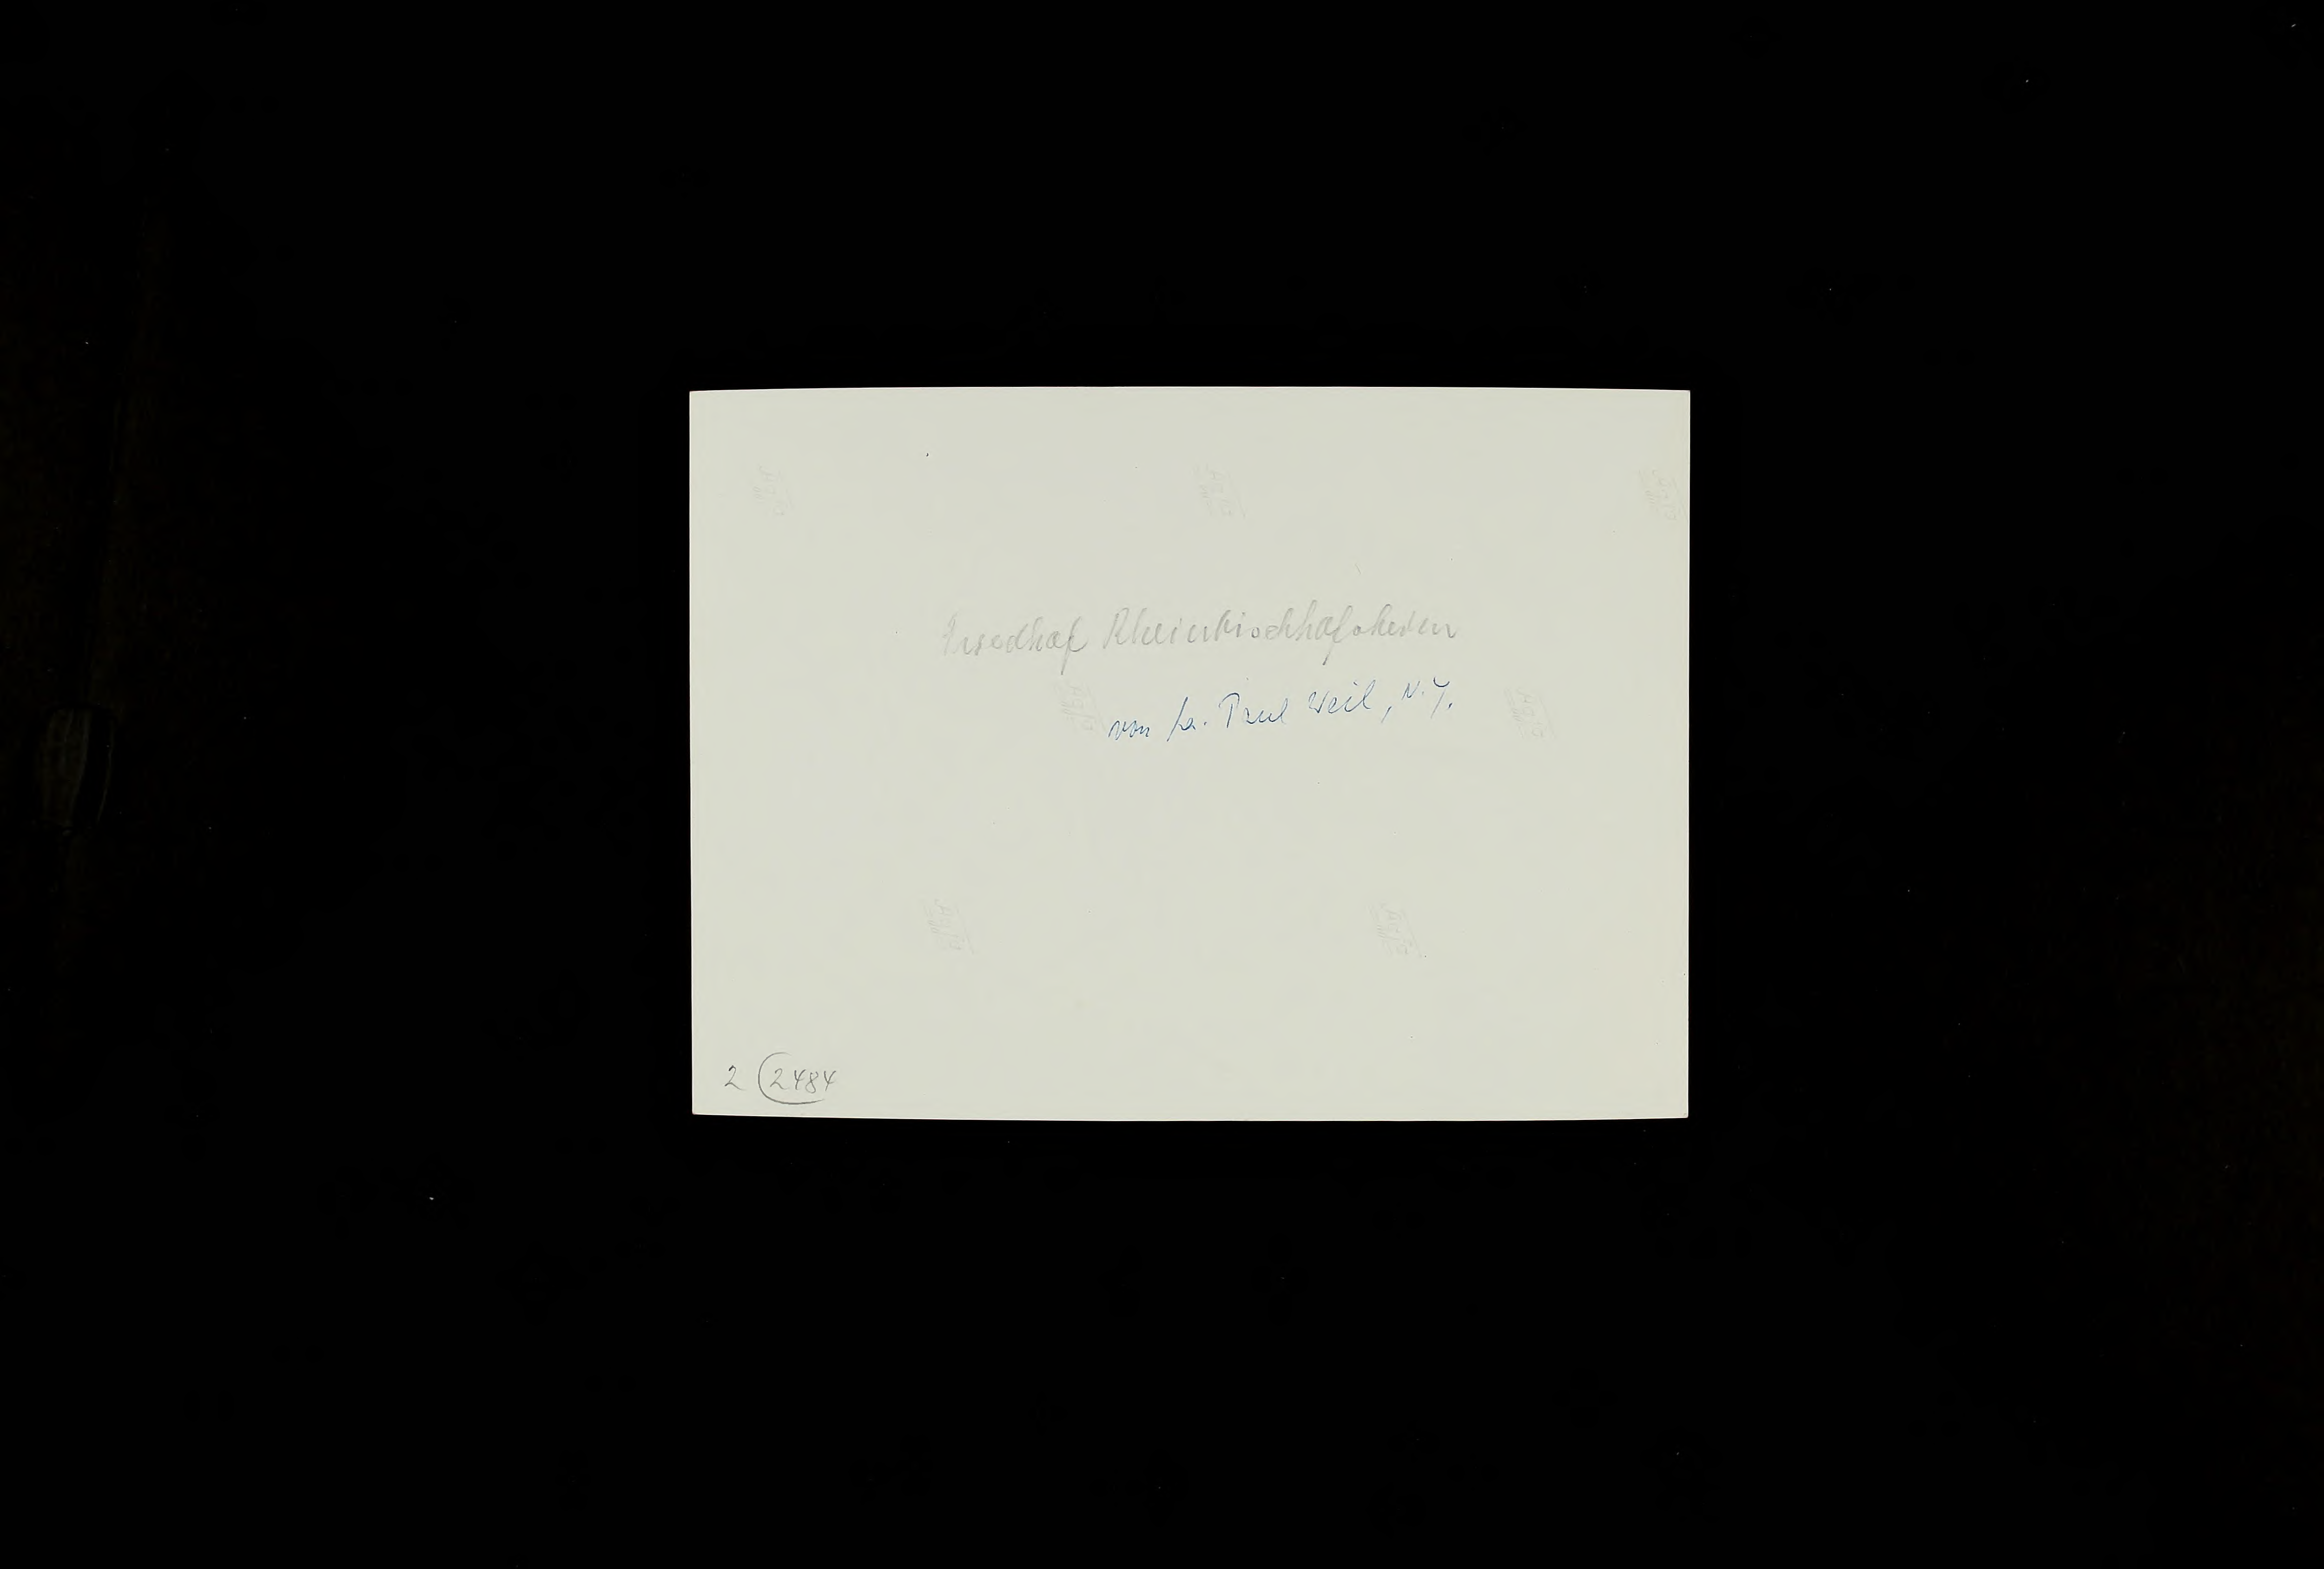 Friedhof Rheinbischofsheim
von Dr. Paul Weil, N.Y.
2 (2484